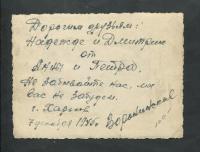 Дорогим друзьям:
Надежде и Дмитрию
от
Анны и Петра.
Не забывайте нас, мы
вас не забудем.
г. Харьков